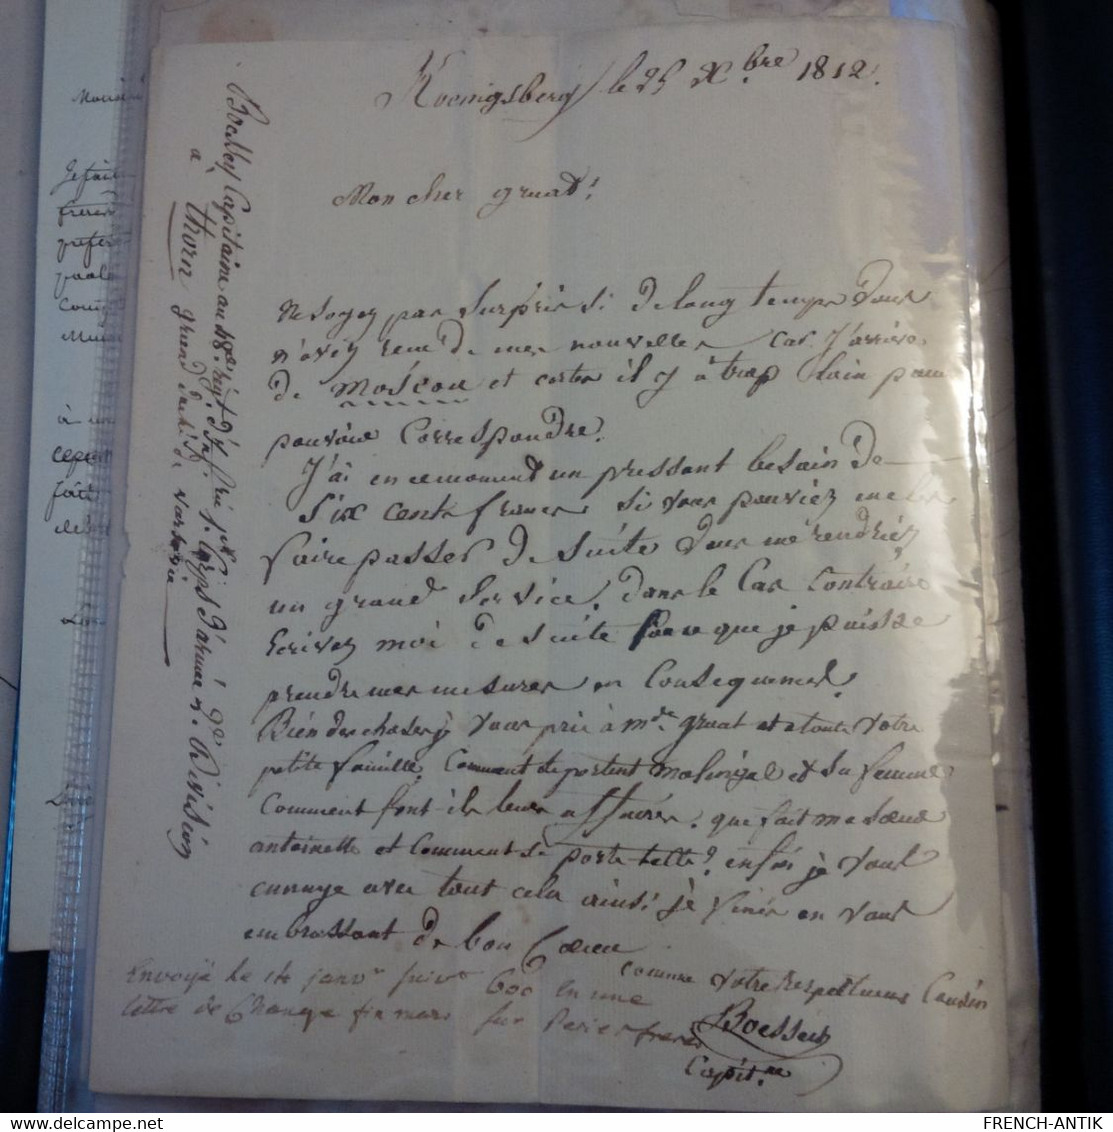 Koenigsberg le 25 Xbre 1812.
Mon cher gruat!
ne soyez pas surpris si de long temps vous
n'avez reçu de mes nouvelles car j'arrive
de Moscou et certes il y à trop loin pour
pouvoir correspondre.
J'ai en ce moment un pressant besoin de
Six cents francs si vous pouviez me les
faire passer de suite vous me rendriez
un grand service, dans le cas contraire
Ecrivez moi de suite pour que je puisse
prendre mes mesures en consequences.
Bien des choses j vous prie à Mde gruat et a toute votre
petite famille, Comment se portent et sa femme
comment font-ils leurs affaires. que fait ma soeur
antoinette et comment se porte telle? enfin je vous
ennuye avec tout cela ainsi je finis en vous
embrassant de bon Coeur
comme votre respectueux Cousin
Capitne
Envoyé le 14 janvr suivt 600 en une
lettre de change fin mars sur Perier freres
Capitaine au 18e regt d'Infrie Corps d'armée 2e Division
à thorn grand duché de varsovie
Monsieur
Je fais
à un
fait
FRENCH-ANTIK